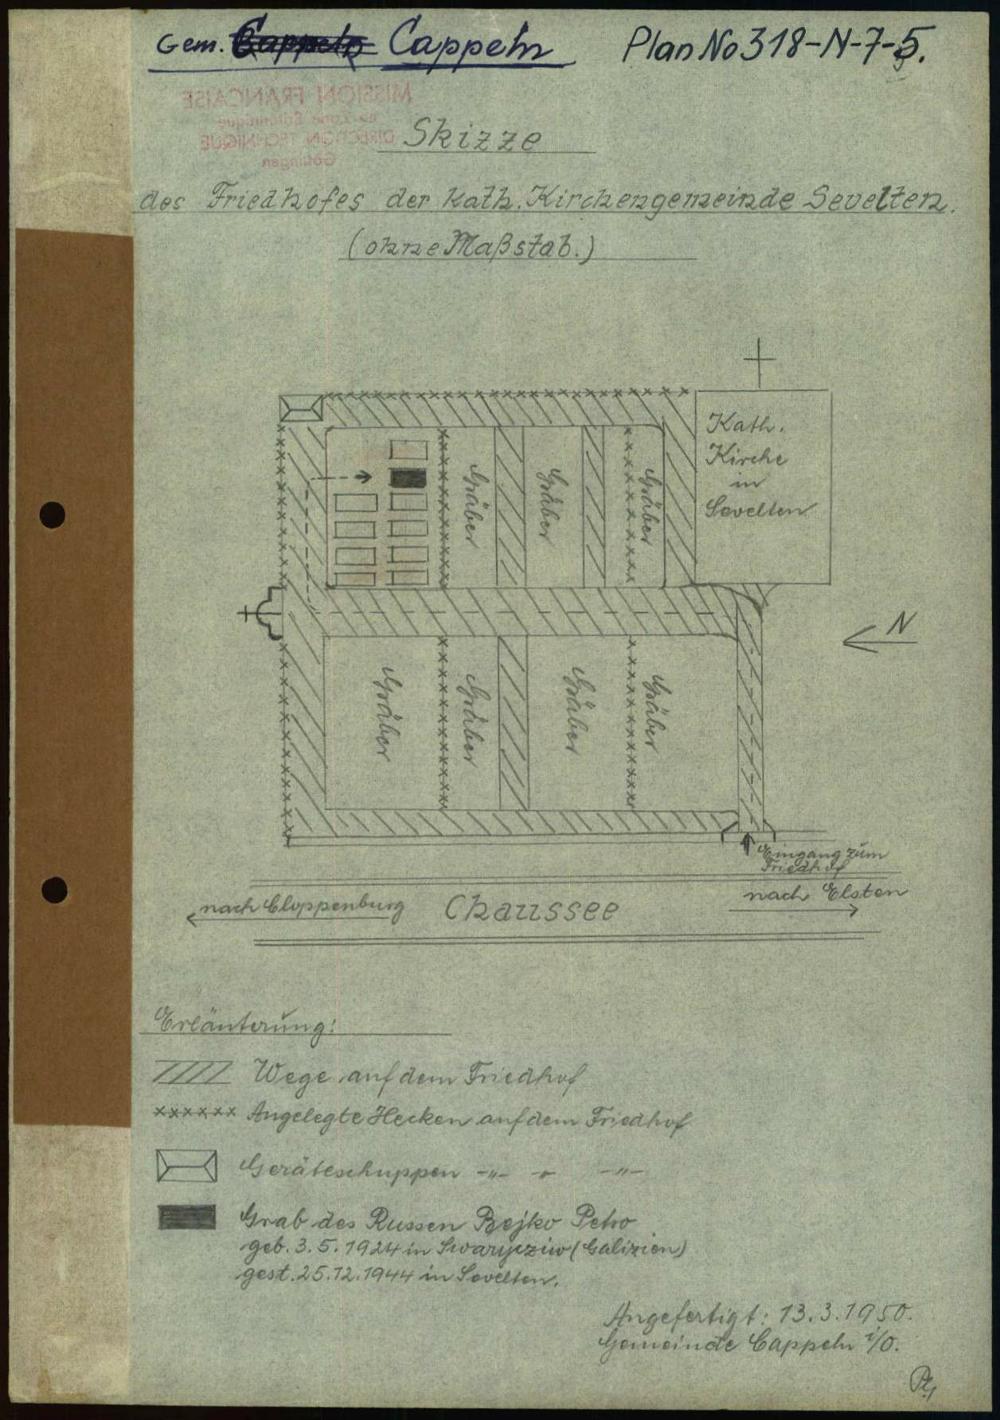 Gem. Cappeln Cappeln Plan No 318-N-7-5.
MISSION FRANÇAISE
DIRECTION TECHNIQUE
Göttingen
Skizze
des Friedhofes der kath. Kirchengemeinde Sevelten.
(ohne Maßstab.)
Kath.
Kirche
in
Sevelten
Gräber
Gräber
Gräber
N
Gräber
Gräber
Gräber
Gräber
Eingang zum
Friedhof
nach Cloppenburg Chaussee nach Elsten
Erläuterung:
Wege auf dem Friedhof
Angelegte Hecken auf dem Friedhof
Geräteschuppen -"- " -"-
Grab des Russen Bojko Petro
geb. 3.5.1924 in Swarycziw (Galizien)
gest. 25.12.1944 in Sevelten.
Angefertigt: 13.3.1950.
Gemeinde Cappeln i/O.